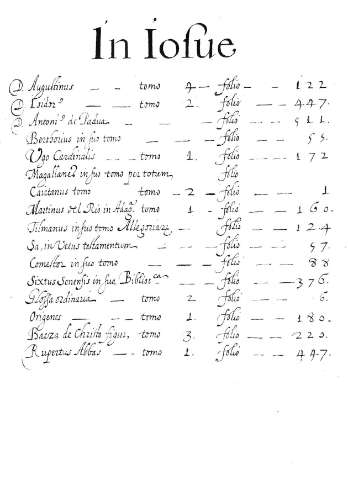 In Iosue
D. Augustinus — — tomo 4 — folio — 122
D. Isidor.º — — tomo 2. folio — — 447.
D. Antoni.º de Padua — — folio — — 511.
in suo tomo — — folio — — 55.
Ugo Cardinalis — — tomo 1. folio — — 172
Magalianes in suo tomo per totum, folio
Caietanus tomo — 2 — folio — — 1
Martinus del Rio in Adag. tomo 1. folio — — 160.
Tilmanus in suo tomo Allegoriarū — folio — — 124
Sa, in Vetus testamentum — folio — — 57.
Comestor in suo tomo — folio — — 88
Sixtus Senensis in sua Biblioteca — folio — — 376.
Glossa ordinaria — tomo 2 — folio — — 6.
Origenes — — — tomo 1. folio — — 180.
Baeza de Christo figur. tomo 3. folio — — 220.
Rupertus Abbas — tomo 1. folio — — 447.